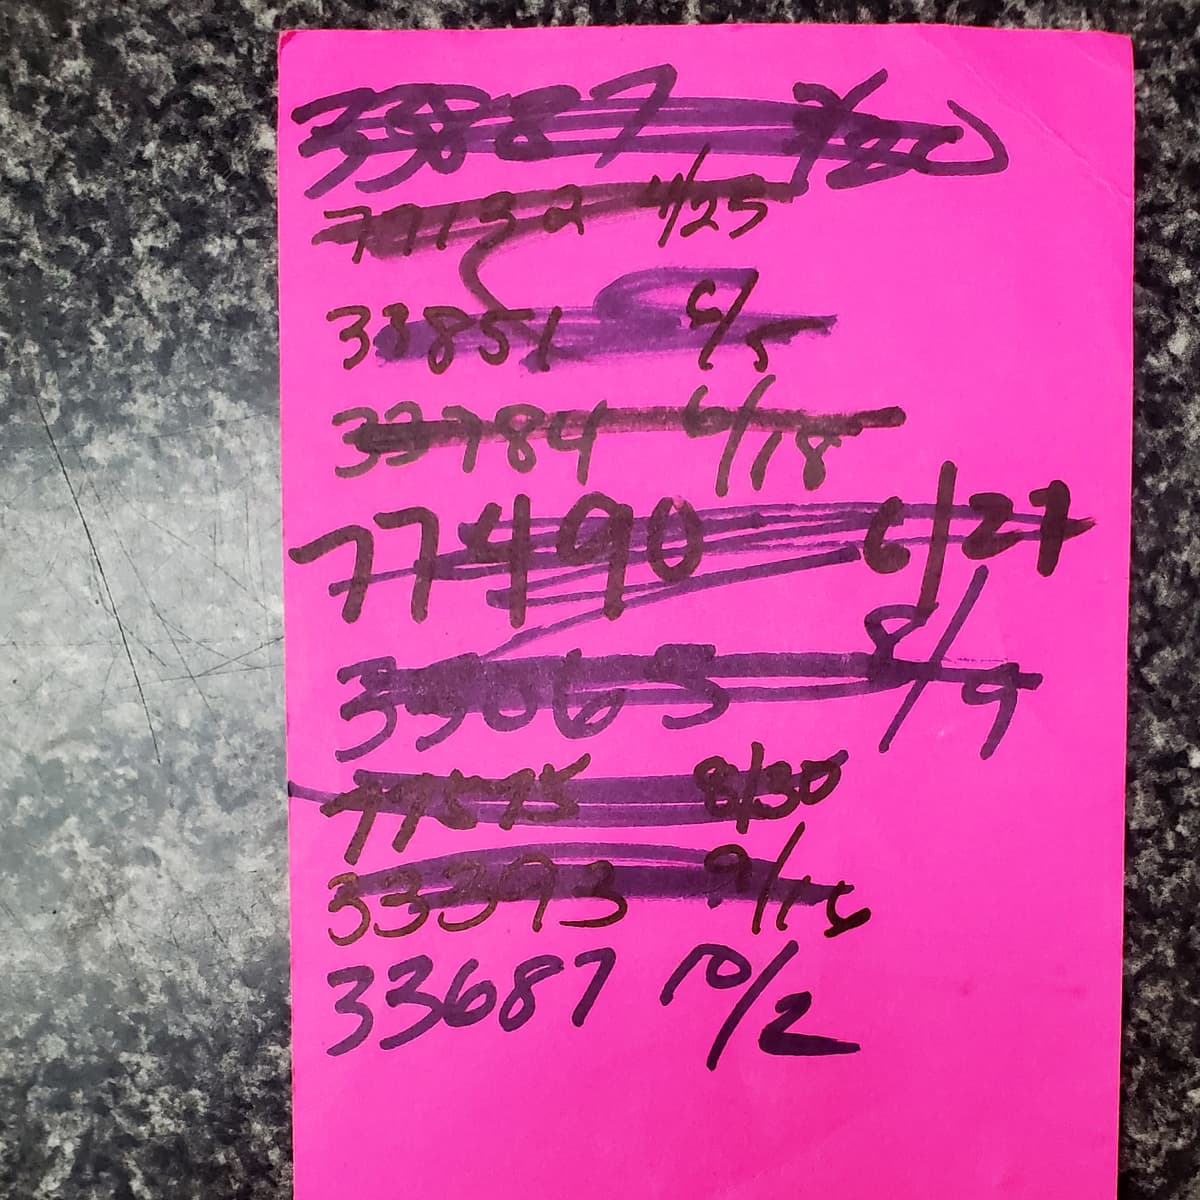 33887
77132 4/25
33851 6/5
33784 6/18
77490 6/27
33063 8/9
77575 8/30
33393 9/15
33687 10/2